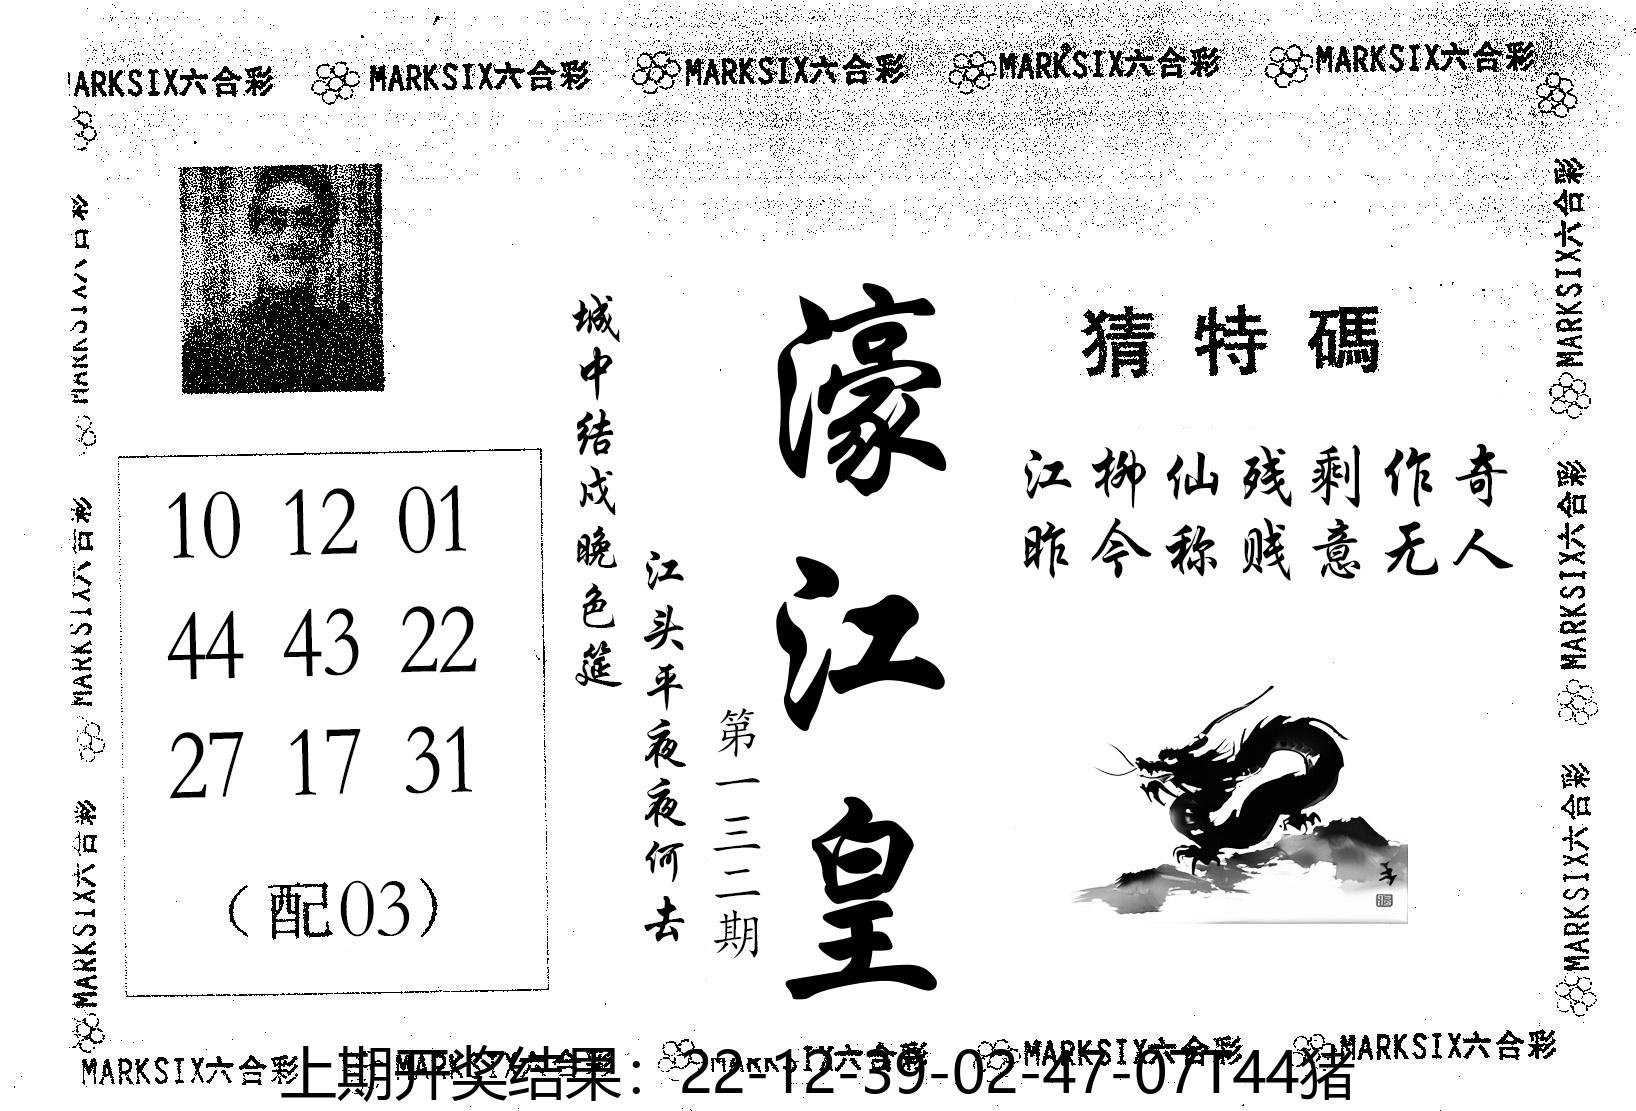 MARKSIX六合彩 MARKSIX六合彩 MARKSIX六合彩 MARKSIX六合彩 MARKSIX六合彩
猜特碼
江柳仙残剩作奇
昨今称贱意无人
濠江皇
第一三二期
江头平夜夜何去
城中结戍晚色筵
10 12 01
44 43 22
27 17 31
(配03)
MARKSIX六合彩
MARKSIX六合彩
MARKSIX六合彩
MARKSIX六合彩
MARKSIX六合彩
MARKSIX六合彩
MARKSIX六合彩 MARKSIX六合彩 MARKSIX六合彩 MARKSIX六合彩 MARKSIX六合彩
上期开奖结果：22-12-39-02-47-07T44猪